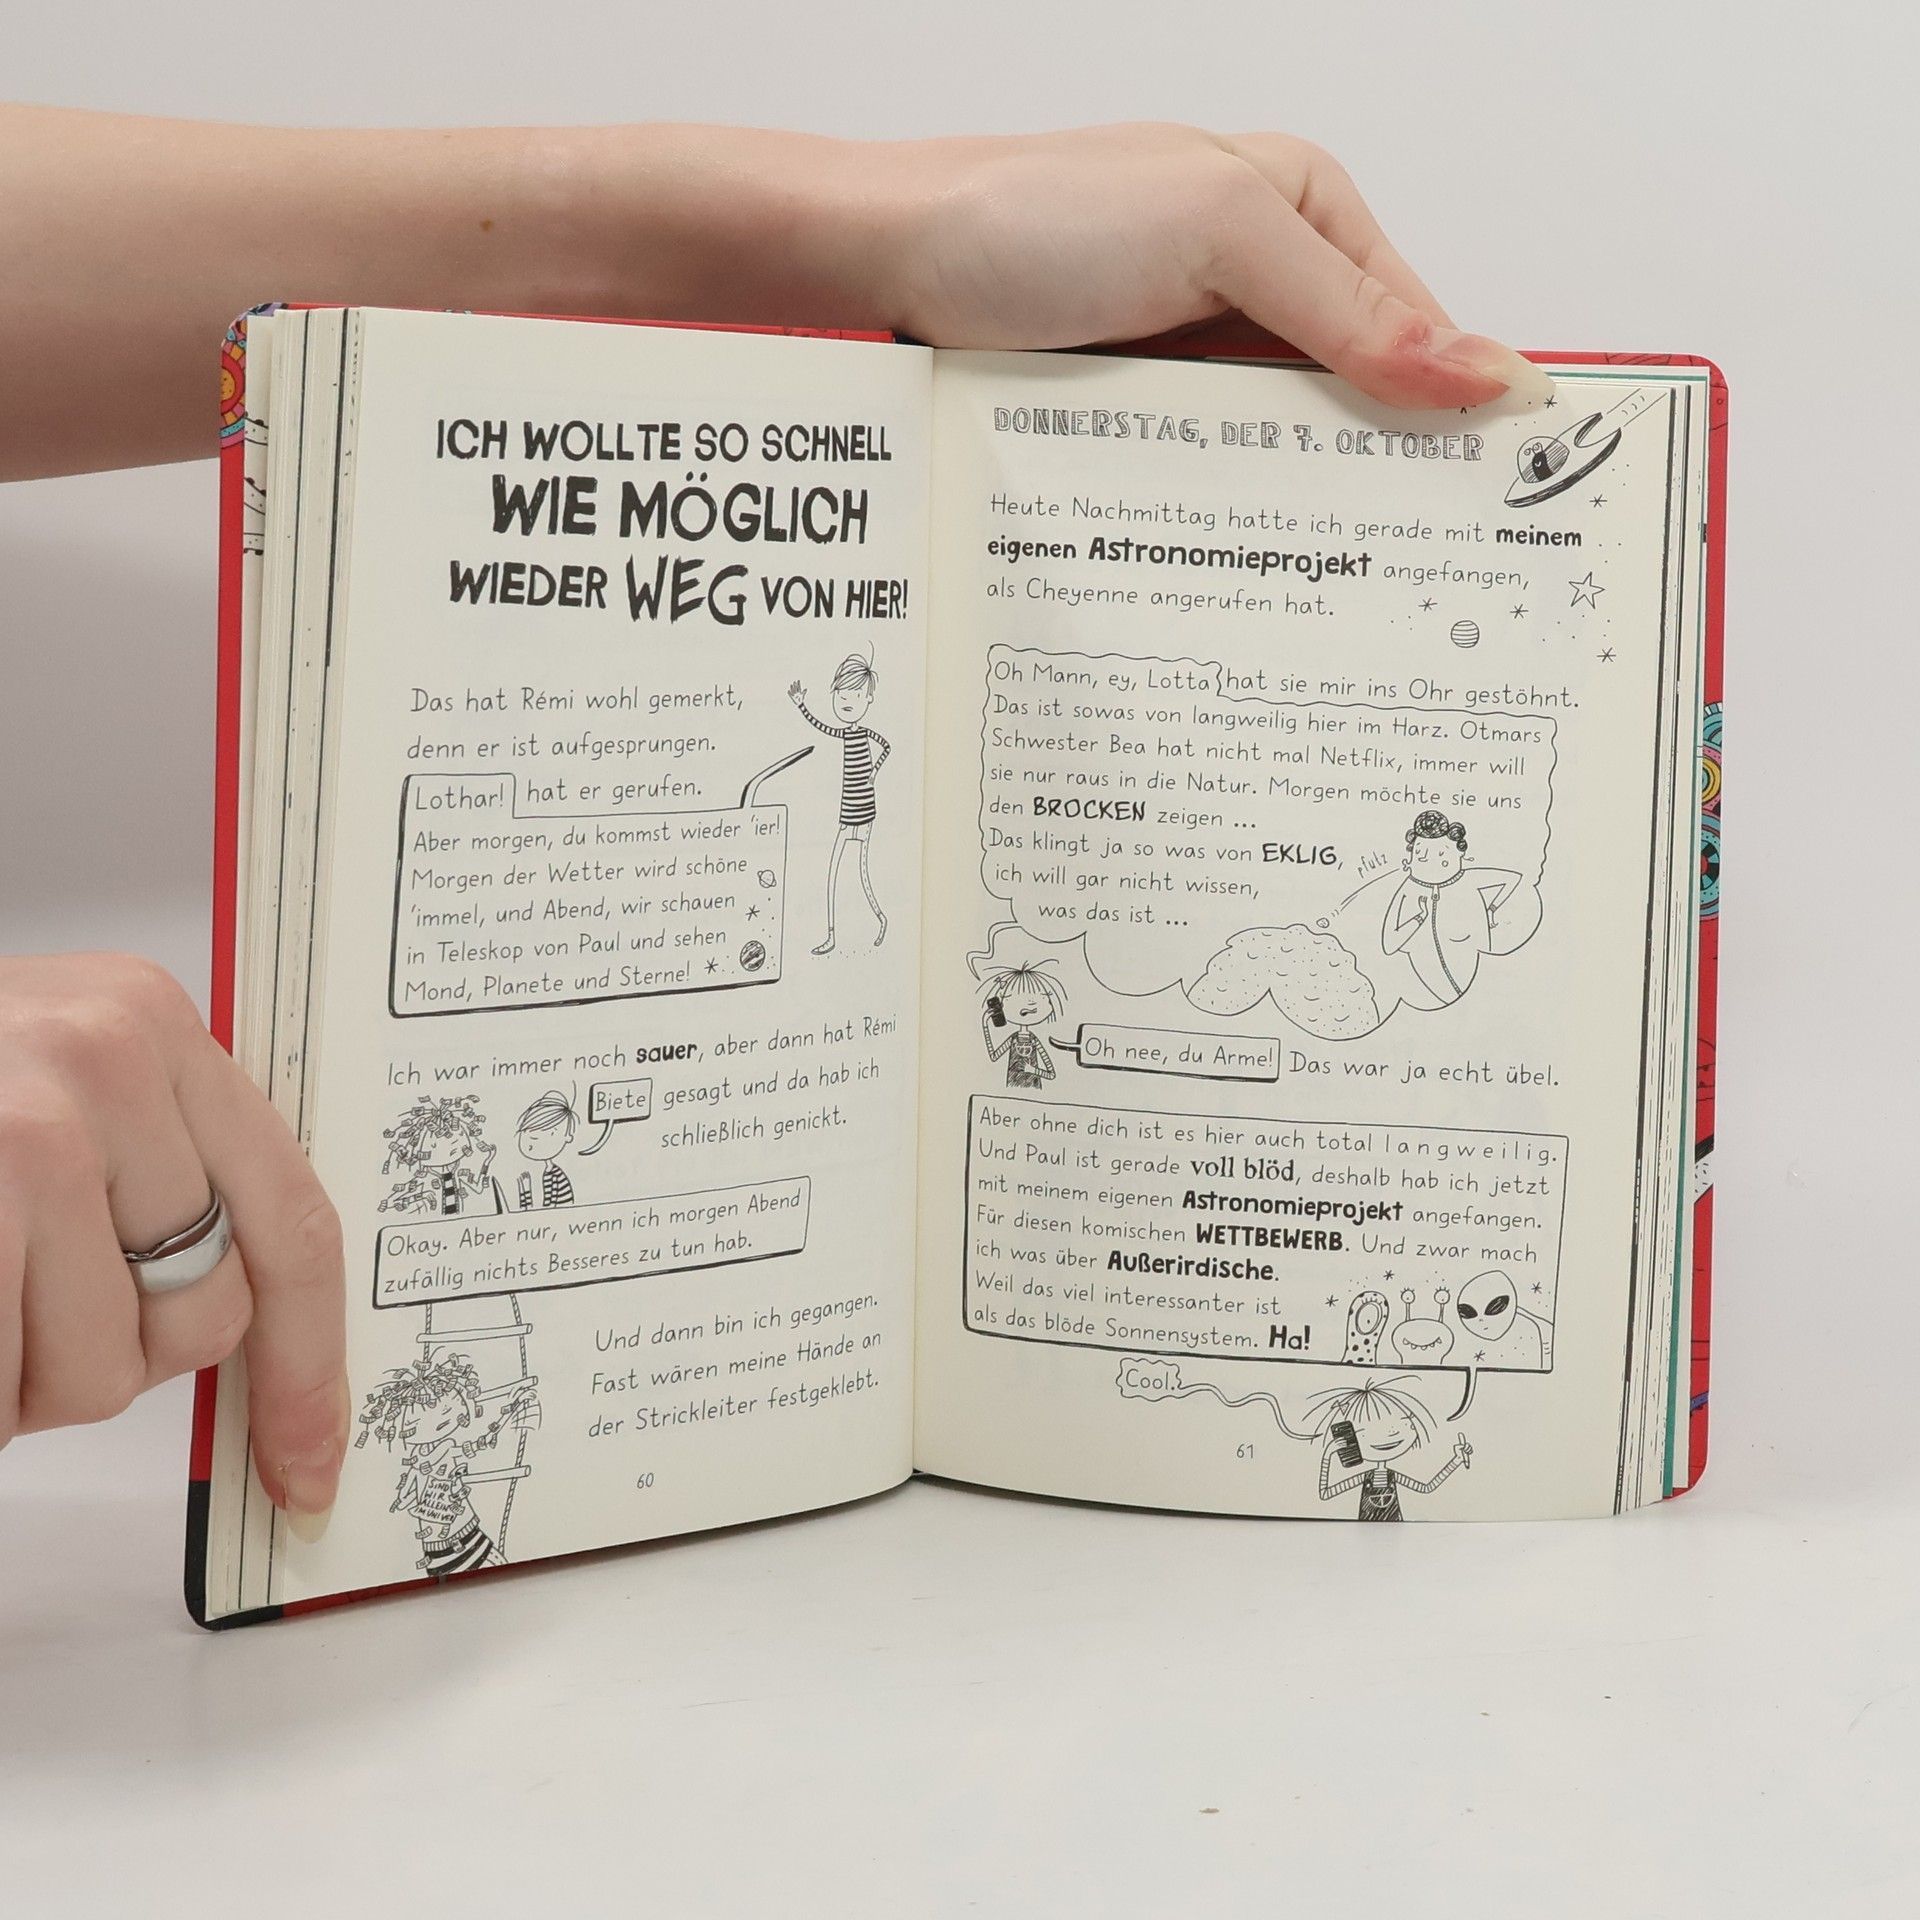 ICH WOLLTE SO SCHNELL
WIE MÖGLICH
WIEDER WEG VON HIER!
Das hat Rémi wohl gemerkt,
denn er ist aufgesprungen.
Lothar! hat er gerufen.
Aber morgen, du kommst wieder 'ier!
Morgen der Wetter wird schöne
'immel, und Abend, wir schauen
in Teleskop von Paul und sehen
Mond, Planete und Sterne!
Ich war immer noch sauer, aber dann hat Rémi
Biete gesagt und da hab ich
schließlich genickt.
Okay. Aber nur, wenn ich morgen Abend
zufällig nichts Besseres zu tun hab.
Und dann bin ich gegangen.
Fast wären meine Hände an
der Strickleiter festgeklebt.
SIND
WIR
ALLEIN
IM UNIVER
60
DONNERSTAG, DER 7. OKTOBER
Heute Nachmittag hatte ich gerade mit meinem
eigenen Astronomieprojekt angefangen,
als Cheyenne angerufen hat.
Oh Mann, ey, Lotta hat sie mir ins Ohr gestöhnt.
Das ist sowas von langweilig hier im Harz. Otmars
Schwester Bea hat nicht mal Netflix, immer will
sie nur raus in die Natur. Morgen möchte sie uns
den BROCKEN zeigen ...
Das klingt ja so was von EKLIG,
ich will gar nicht wissen,
was das ist ...
Oh nee, du Arme! Das war ja echt übel.
Aber ohne dich ist es hier auch total langweilig.
Und Paul ist gerade voll blöd, deshalb hab ich jetzt
mit meinem eigenen Astronomieprojekt angefangen.
Für diesen komischen WETTBEWERB. Und zwar mach
ich was über Außerirdische.
Weil das viel interessanter ist
als das blöde Sonnensystem. Ha!
Cool.
61